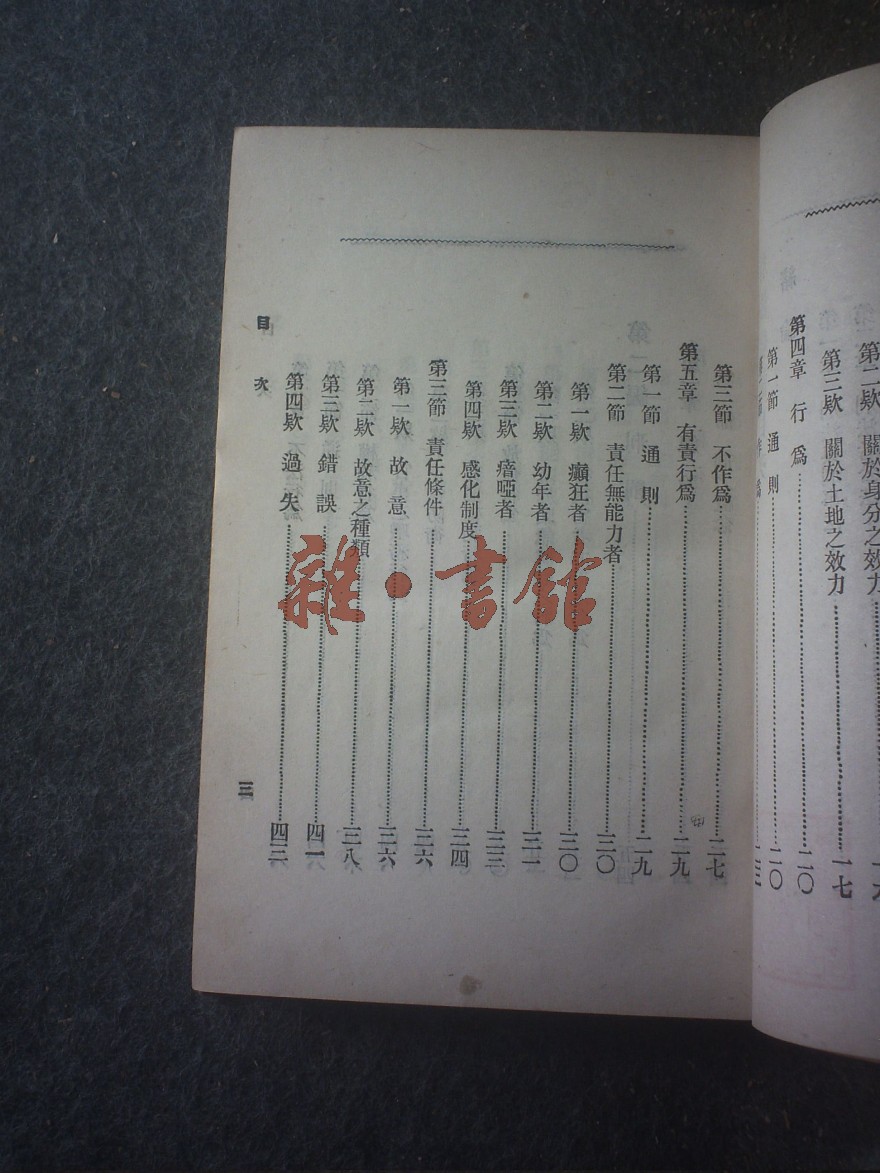 第二欵 關於身分之效力
第三欵 關於土地之效力 一七
第四章 行爲 二〇
第一節 通則 二〇
第三節 不作爲 二七
第五章 有責行爲 二九
第一節 通則 二九
第二節 責任無能力者 三〇
第一欵 癲狂者 三〇
第二欵 幼年者
第三欵 瘖啞者 三三
第四欵 感化制度 三四
第三節 責任條件 三六
第一欵 故意 三六
第二欵 故意之種類 三八
第三欵 錯誤 四一
第四欵 過失
目次
三
雜·書館